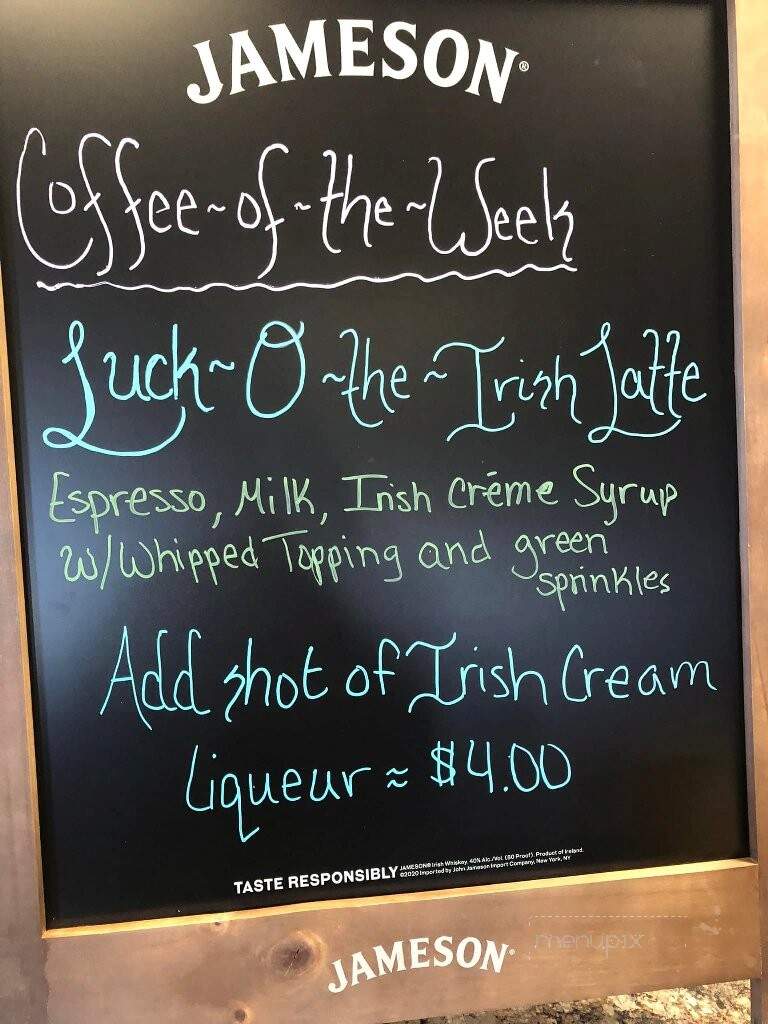 JAMESON®
Coffee~of~the~Week
Luck~O~the~Irish Latte
Espresso, Milk, Irish Créme Syrup
w/Whipped Topping and green
sprinkles
Add shot of Irish Cream
Liqueur ≈ $4.00
TASTE RESPONSIBLY JAMESON® Irish Whiskey. 40% Alc./Vol. (80 Proof). Product of Ireland.
©2020 Imported by John Jameson Import Company, New York, NY
JAMESON®
menupix